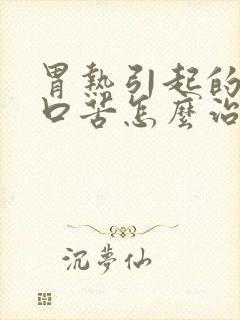 胃熱引起的
口苦怎麼治
沉夢仙